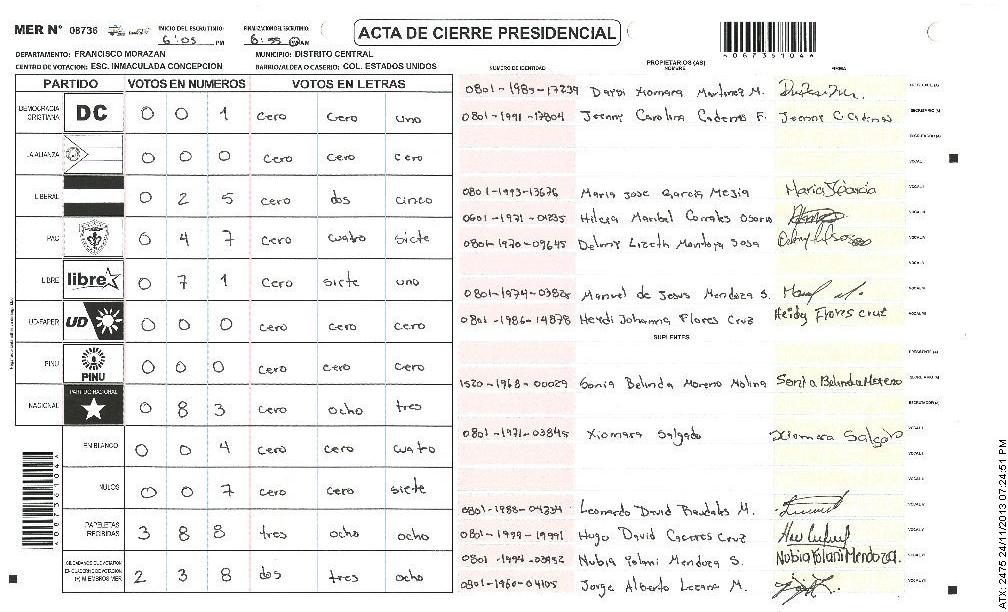 MER N° 08736 INICIO DEL ESCRUTINIO: 6:05 PM FINALIZACION DEL ESCRUTINIO: 6:55 ACTA DE CIERRE PRESIDENCIAL
DEPARTAMENTO: FRANCISCO MORAZAN MUNICIPIO: DISTRITO CENTRAL
CENTRO DE VOTACION: ESC. INMACULADA CONCEPCION BARRIO/ALDEA O CASERIO: COL. ESTADOS UNIDOS
4087361044
PARTIDO VOTOS EN NUMEROS VOTOS EN LETRAS
DEMOCRACIA CRISTIANA DC 0 0 1 cero cero uno
LA ALIANZA 0 0 0 cero cero cero
LIBERAL 0 2 5 cero dos cinco
PAC 0 4 7 cero cuatro siete
LIBRE libre 0 7 1 cero siete uno
UD-FAPER UD 0 0 0 cero cero cero
PINU PINU 0 0 0 cero cero cero
NACIONAL PARTIDO NACIONAL 0 8 3 cero ocho tres
EN BLANCO 0 0 4 cero cero cuatro
NULOS 0 0 7 cero cero siete
PAPELETAS RECIBIDAS 3 8 8 tres ocho ocho
2 3 8 dos tres ocho
NUMERO DE IDENTIDAD PROPIETARIOS (AS) NOMBRE FIRMA
0801-1985-17239 Martinez M.
0801-1991-17804 Jeanny Carolina F.
0801-1993-13676 Maria Jose Garcia Mejia Maria J Garcia
0601-1971-01235 Maribel Corrales Osorio
0801-1970-09645 Lizeth Mendoza Sosa
0801-1974-03825 Manuel de Jesus Mendoza S.
0801-1986-14878 Heydi Johanna Flores Cruz Heidy Flores Cruz
SUPLENTES
1520-1968-00029 Sonia Belinda Moreno Molina Sonia Belinda Moreno
0801-1971-03845 Xiomara Salgado Xiomara Salgado
0801-1988-04234 Leonardo David M.
Hugo David Caceres Cruz
Nubia Yolani Mendoza S. Nubia Yolani Mendoza.
0801-1960-04105 Jorge Alberto Lezama M.
ATX: 2475 24/11/2013 07:24:51 PM